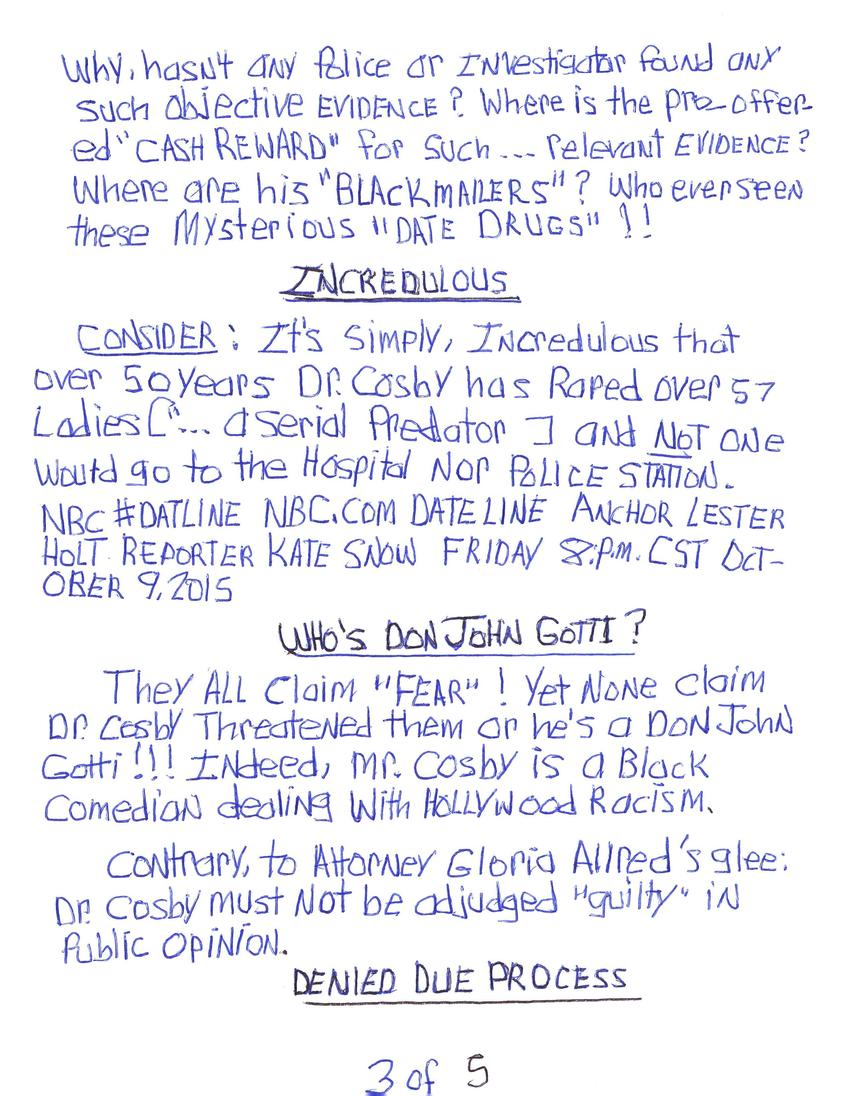 Why, hasn't ANY Police or INvestigator found ANY
such objective EVIDENCE? Where is the pre-offer-
ed "CASH REWARD" for such... relevant EVIDENCE?
Where are his "BLACKMAILERS"? Who ever seen
these Mysterious "DATE DRUGS" !!
INCREDULOUS
CONSIDER: It's simply, INcredulous that
over 50 years Dr. Cosby has Raped over 57
Ladies ["... a serial Predator ] and NOT ONE
would go to the Hospital NOR POLICE STATION.
NBC #DATLINE NBC.COM DATELINE ANCHOR LESTER
HOLT REPORTER KATE SNOW FRIDAY 8:P.M. CST OCT-
OBER 9, 2015
WHO'S DON JOHN GOTTI?
They ALL Claim "FEAR"! Yet NONE claim
Dr. Cosby Threatened them or he's a DON John
Gotti!!! INdeed, Mr. Cosby is a Black
Comedian dealing With HOLLYWood Racism.
Contrary, to Attorney Gloria Allred's glee:
Dr. Cosby must Not be adjudged "guilty" iN
Public OPiNioN.
DENIED DUE PROCESS
3 of 5